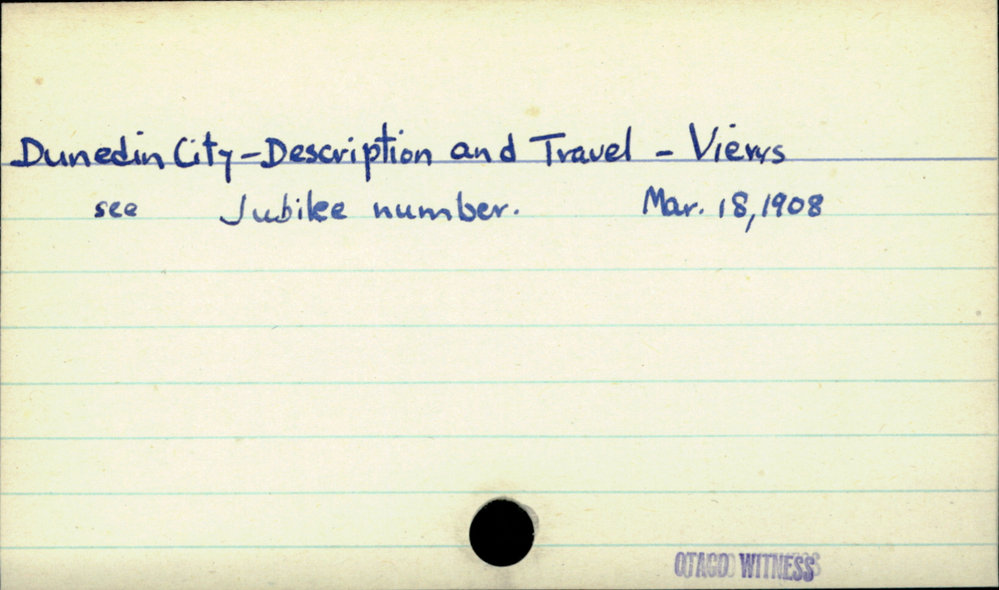 Dunedin City-Description and Travel - Views
see Jubilee number. Mar. 18, 1908
OTAGO WITNESS